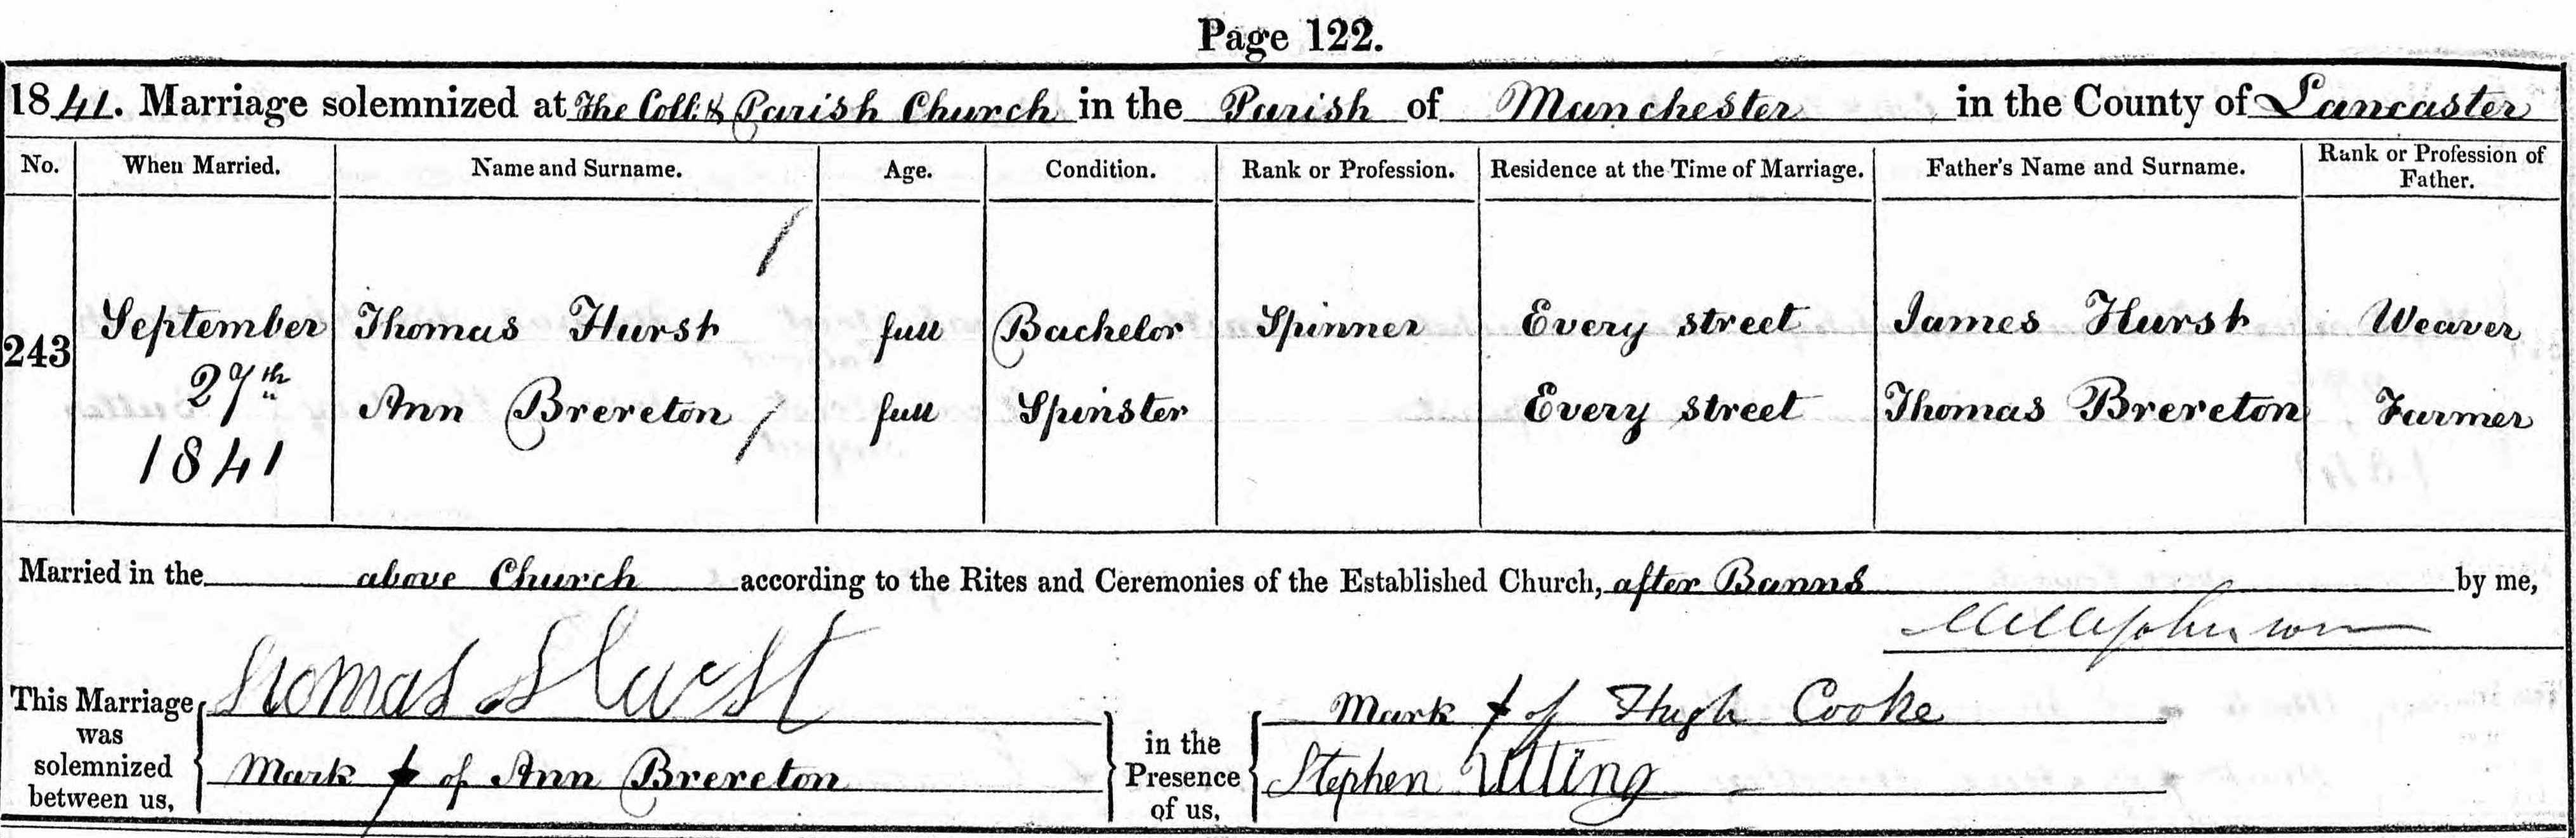 Page 122.
1841. Marriage solemnized at The Coll: & Parish Church in the Parish of Manchester in the County of Lancaster
No. When Married. Name and Surname. Age. Condition. Rank or Profession. Residence at the Time of Marriage. Father's Name and Surname. Rank or Profession of Father.
243 September 27th 1841
Thomas Hurst full Bachelor Spinner Every street James Hurst Weaver
Ann Brereton full Spinster Every street Thomas Brereton Farmer
Married in the above Church according to the Rites and Ceremonies of the Established Church, after Banns by me,
Johnson
This Marriage was solemnized between us,
Thomas Hurst
Mark + of Ann Brereton
in the Presence of us,
Mark + of Hugh Cooke
Stephen Utting